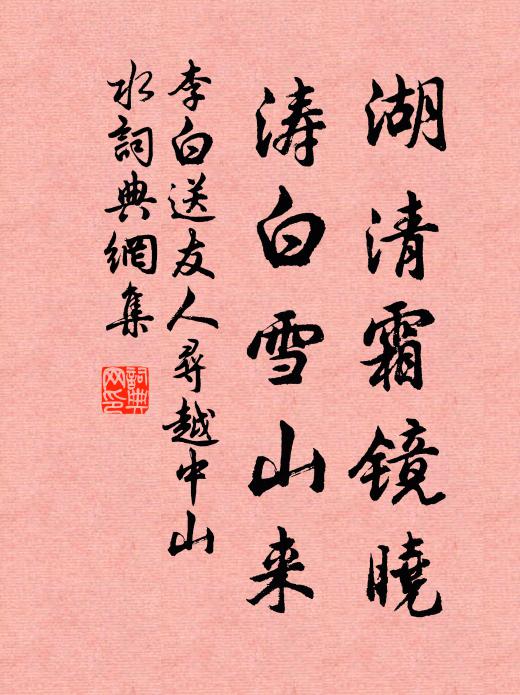 湖清霜镜曉
涛白雪山来
李白送友人尋越中山
水詞典網集
詞典网印